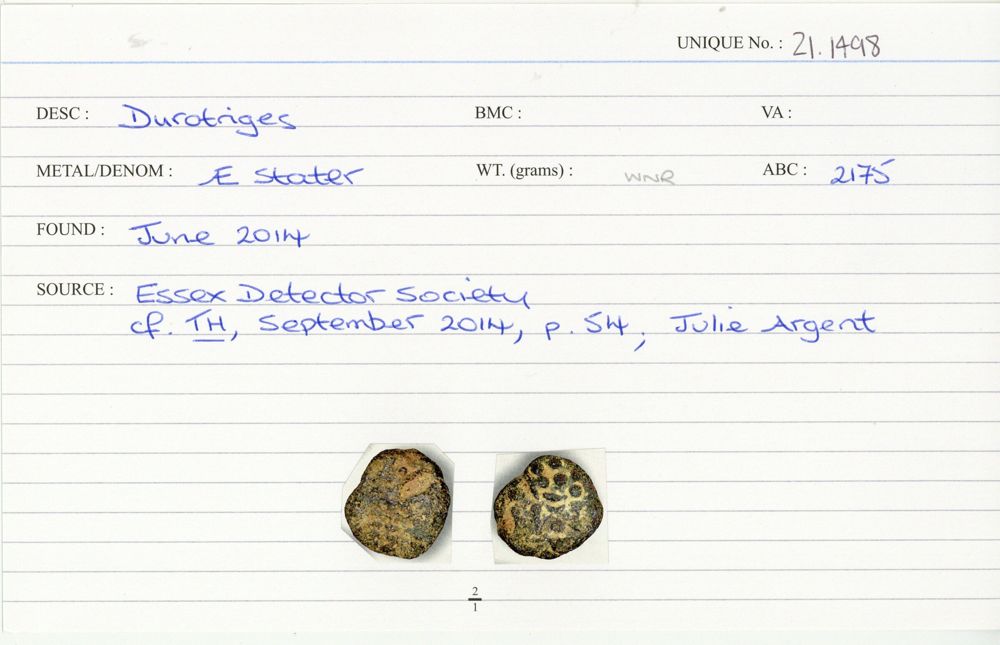 UNIQUE No. : 21.1498
DESC : Durotriges BMC : VA :
METAL/DENOM : Æ Stater WT. (grams) : WNR ABC : 2175
FOUND : June 2014
SOURCE : Essex Detector Society
cf. TH, September 2014, p. 54, Julie Argent
2
1